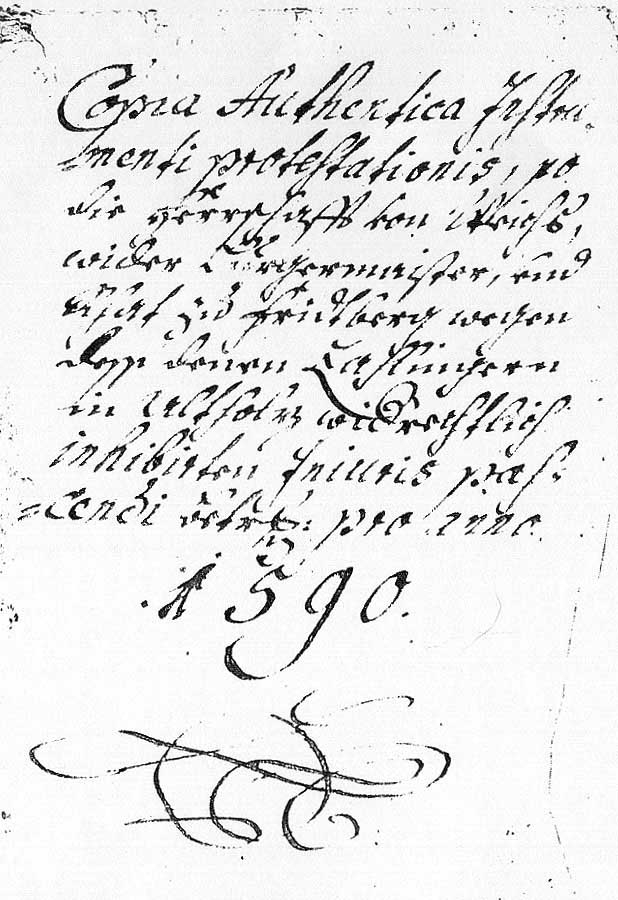 Copia Authentica Instru-
menti protestationis, so
die Herrschafft von Weichs,
wider Burgermaister, und
Rhat zu Fridtberg wegen
dess denen
in Altholz widerrechtlich
inhibirten Iniuris pas-
cendi betreff: pro anno
1590.